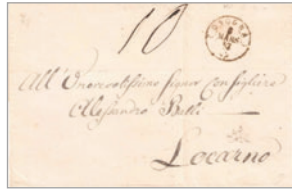 10
All' Onorevolissimo Signor Consigliere
Alessandro Balli
Locarno